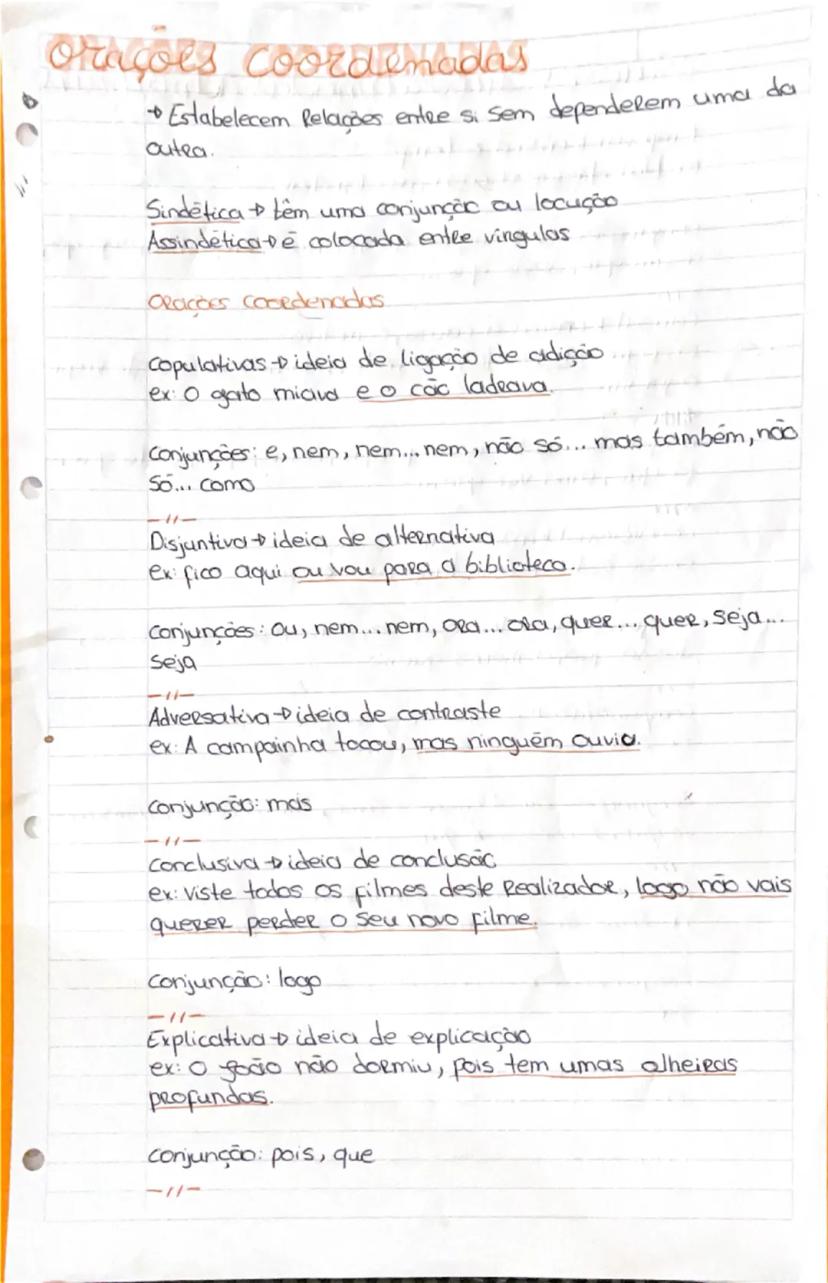 orações coordenadas
→ Estabelecem Relações entre si sem dependerem uma da
outra.
Sindética → têm uma conjunção ou locução
Assindética → é colocada entre vírgulas
orações coordenadas
Copulativas → ideia de ligação de adição
ex: O gato miava e o cão ladrava.
Conjunções: e, nem, nem... nem, não só... mas também, não
só... como
-11-
Disjuntiva → ideia de alternativa
ex: fico aqui ou vou para a biblioteca.
Conjunções: ou, nem... nem, ora... ora, quer... quer, seja...
seja
-11-
Adversativa → ideia de contraste
ex: A campainha tocou, mas ninguém ouvio.
Conjunção: mas
-11-
Conclusiva → ideia de conclusão
ex: viste todos os filmes deste Realizador, logo não vais
querer perder o seu novo filme.
Conjunção: logo
-11-
Explicativa → ideia de explicação
ex: O João não dormiu, pois tem umas olheiras
profundas.
Conjunção: pois, que
-11-